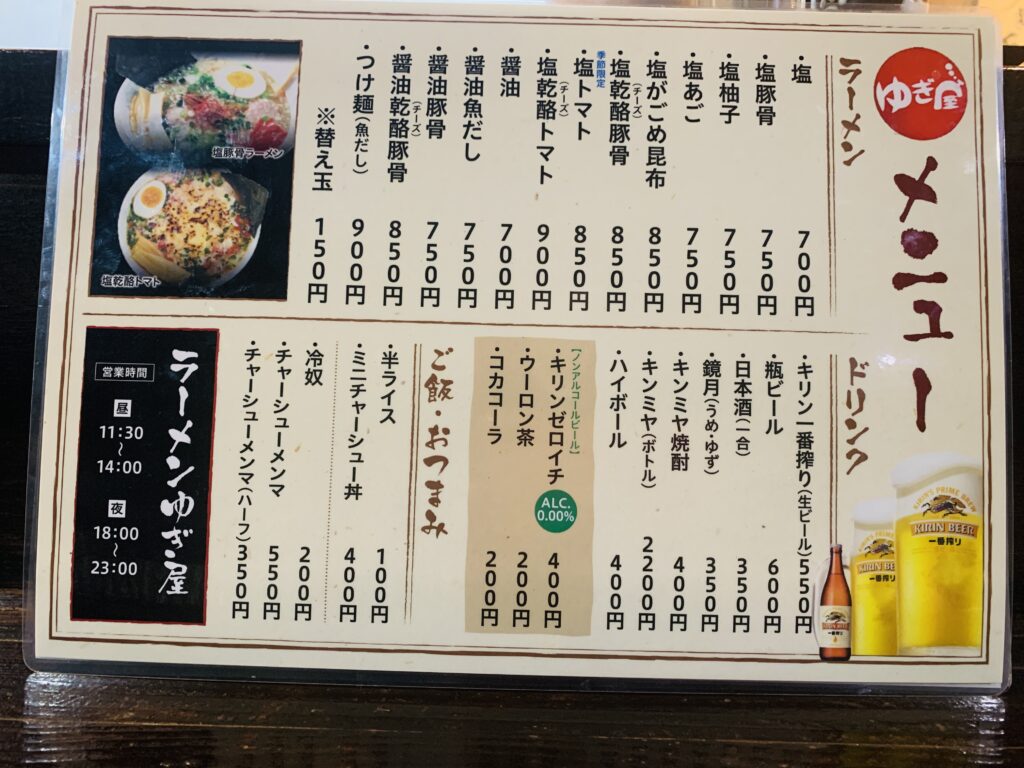 ゆぎ屋
メニュー
ラーメン
・塩 700円
・塩豚骨 750円
・塩柚子 750円
・塩あご 750円
・塩がごめ昆布 850円
・塩乾酪豚骨(チーズ) 850円
季節限定
・塩トマト 850円
・塩乾酪トマト(チーズ) 900円
・醤油 700円
・醤油魚だし 750円
・醤油豚骨 750円
・醤油乾酪豚骨(チーズ) 850円
・つけ麺(魚だし) 900円
※替え玉 150円
塩豚骨ラーメン
塩乾酪トマト
ドリンク
・キリン一番搾り(生ビール) 550円
・瓶ビール 600円
・日本酒(一合) 350円
・鏡月(うめ・ゆず) 350円
・キンミヤ焼酎 400円
・キンミヤ(ボトル) 2200円
・ハイボール 400円
【ノンアルコールビール】
・キリンゼロイチ ALC. 0.00% 400円
・ウーロン茶 200円
・コカコーラ 200円
KIRIN'S PRIME BREW
KIRIN BEER
一番搾り
KIRIN BEER
一番搾り
KIRIN BEER
一番搾り
ご飯・おつまみ
・半ライス 100円
・ミニチャーシュー丼 400円
・冷奴 200円
・チャーシューメンマ 550円
・チャーシューメンマ(ハーフ) 350円
ラーメンゆぎ屋
営業時間
昼
11:30
〜
14:00
夜
18:00
〜
23:00